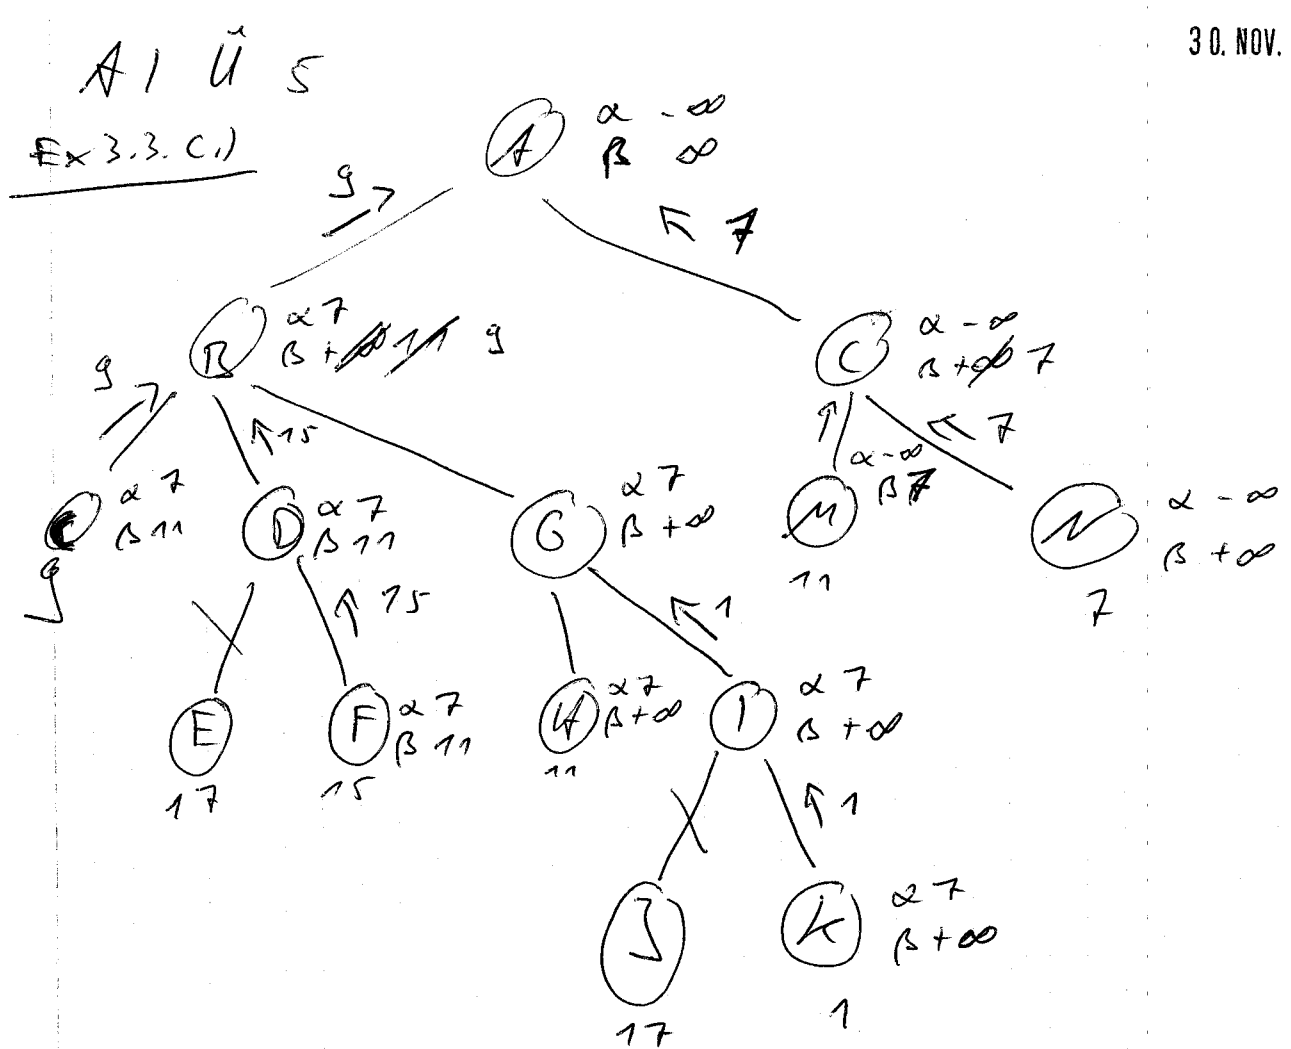 30. NOV.
AI Ü 5
Ex 3.3. c.)
A
α - ∞
β ∞
9
7
B
α 7
β +∞ 11 9
C
α - ∞
β +∞ 7
9
15
7
α 7
β 11
9
D
α 7
β 11
G
α 7
β +∞
M
α -∞
β 7
11
N
α - ∞
β +∞
7
15
1
E
17
F
α 7
β 11
15
H
α 7
β +∞
11
I
α 7
β +∞
1
J
17
K
α 7
β +∞
1